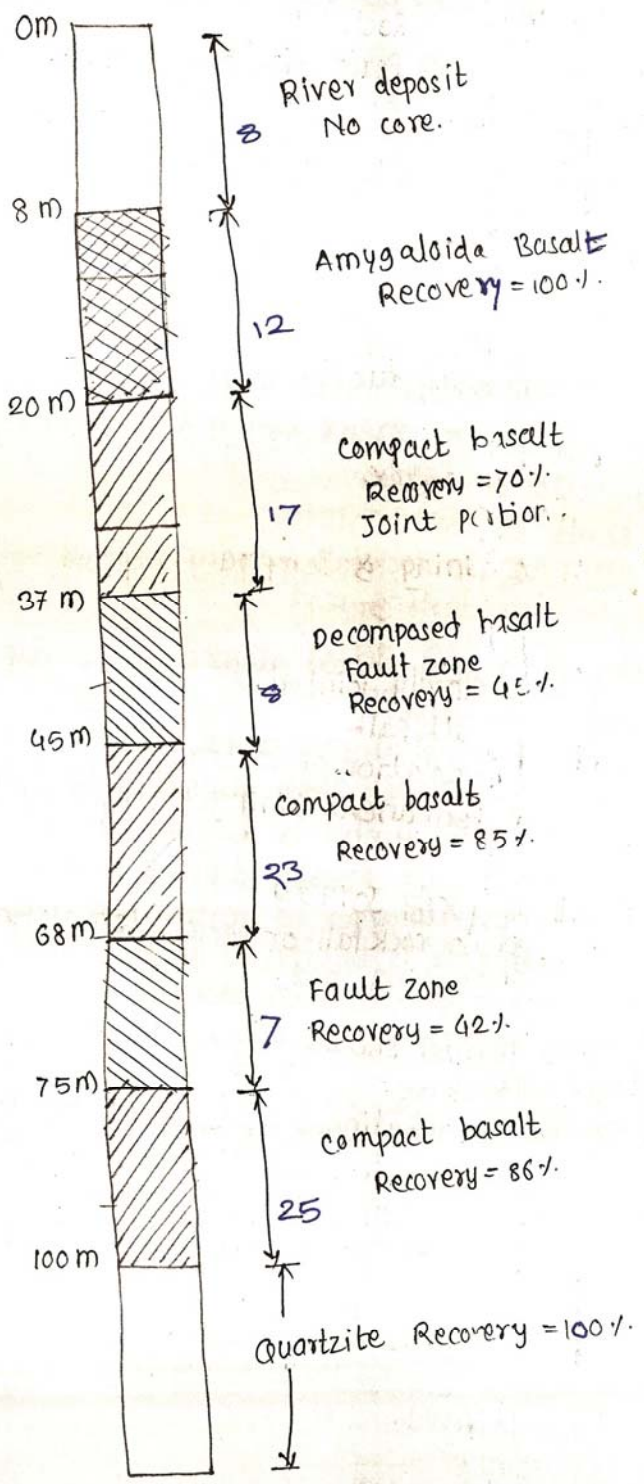 0m
River deposit
No core.
8
8 m
Amygaloida Basalt
Recovery = 100 %.
12
20 m
Compact basalt
Recovery = 70 %
Joint portion.
17
37 m
Decomposed basalt
Fault zone
Recovery =
8
45 m
Compact basalt
Recovery = 85 %.
23
68 m
Fault zone
Recovery = 42 %.
7
75 m
Compact basalt
Recovery = 86 %.
25
100 m
Quartzite Recovery = 100 %.